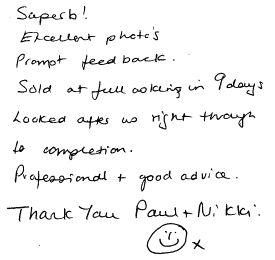 Superb!
Excellent photo's
Prompt feedback.
Sold at full asking in 9 days
Looked after us right through
to completion.
Professional + good advice.
Thank You Paul + Nikki.
x